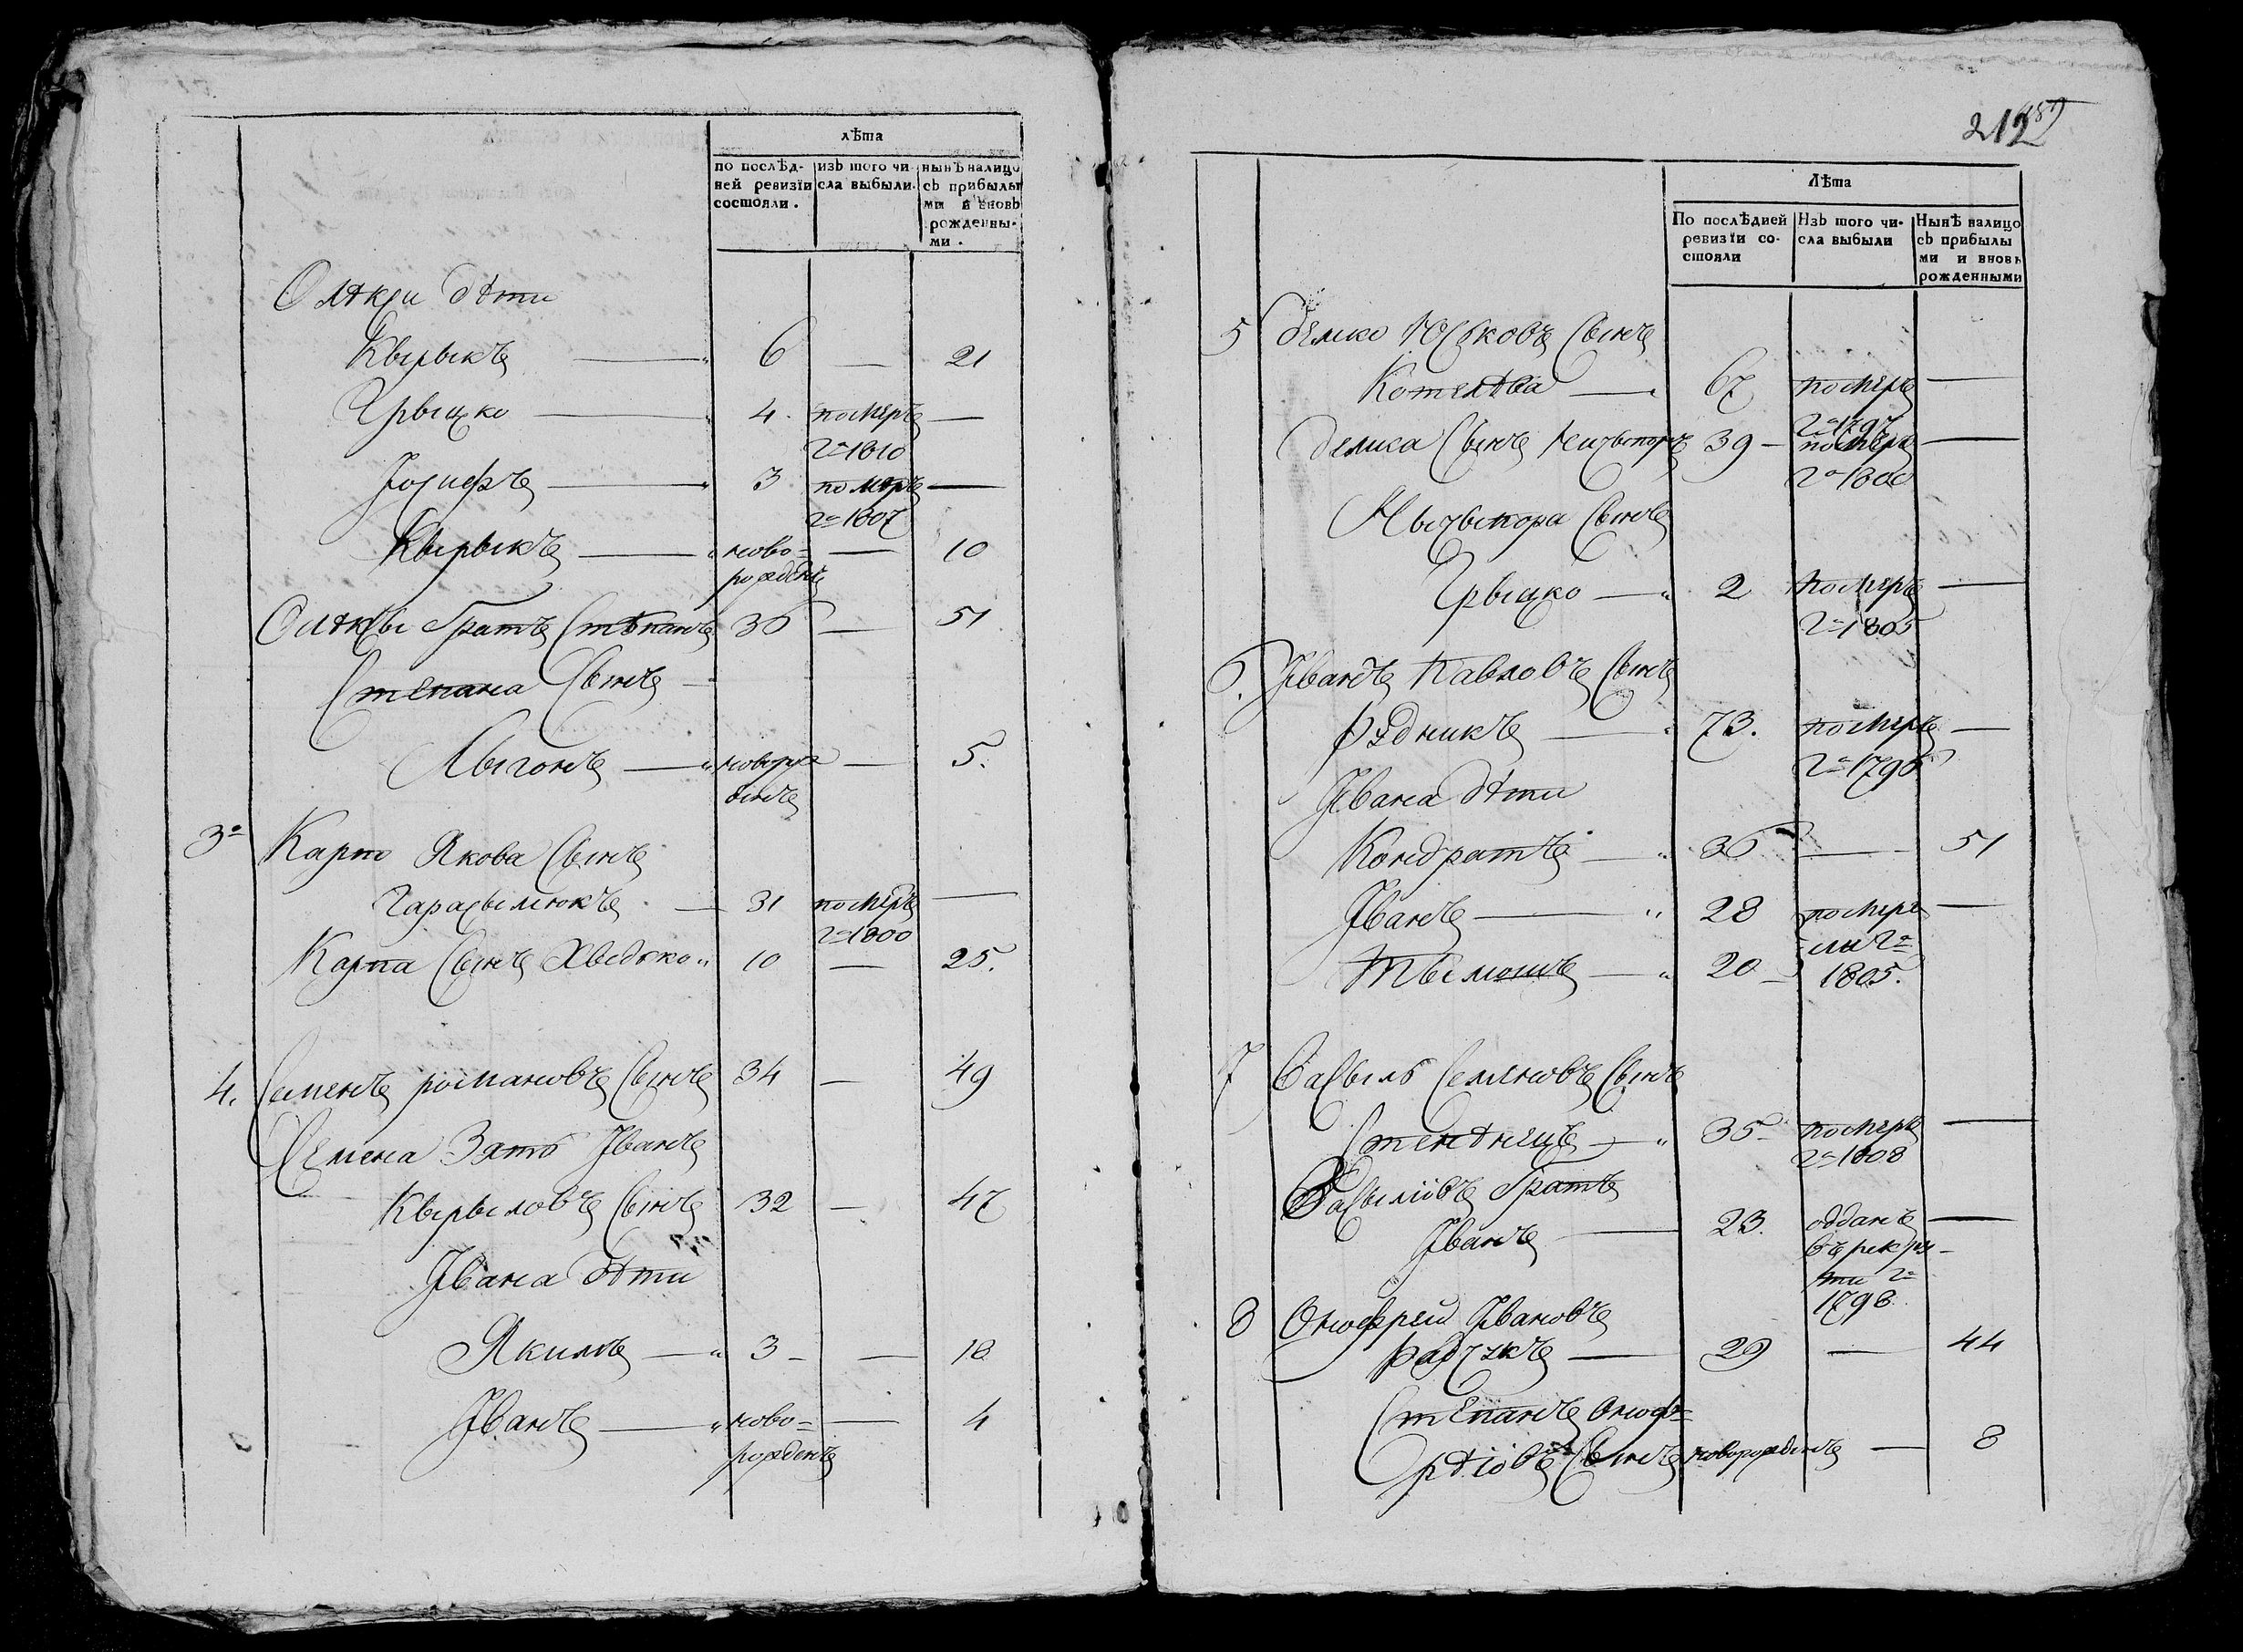 лѣта
по послѣд-
ней ревизїи
состояли.
изъ того чи-
сла выбыли.
нынѣ налицо
съ прибылы
ми и вновь
рожденны-
ми.
Олѣкси дѣти
Кырыкъ — 6 — 21
Грыцко — 4. померъ —
го 1810
Іосифъ — 3 померъ —
го 1807
Кырыкъ — ново- — 10
рожденъ
Олѣксы братъ Стѣпанъ 36 — 51
Степана сынъ
Лыгонъ — — 5.
3 Карпо Якова сынъ
Гарасымюкъ — 31 померъ —
го 1800
Карпа сынъ Хведько 10 — 25.
4. Семенъ романовъ сынъ 34 — 49
Семена Зять Іванъ
Кырыловъ сынъ 32 — 47
Івана дѣти
Якимъ — 3 — 18
Іванъ — ново- — 4
рожденъ
212
Лѣта
По послѣдней
ревизїи со-
стояли
Изъ того чи-
сла выбыли
Нынѣ налицо
съ прибылы
ми и вновь
рожденными
5 демко Юсковъ сынъ
— 67 померъ —
го 1797
демка сынъ 39 — померъ —
го 1800
Нычыпора сынъ
Грыцко — 2 померъ —
го 1805
6. Іванъ Павловъ сынъ
рудникъ — 73. померъ —
го 1798
Івана дѣти
Кондратъ — 36 — 51
Іванъ — 28 помер —
ли го
Тымошъ — 20 — 1805.
7 Васыль Семёновъ сынъ
— 35 — померъ —
го 1808
Васылїовъ братъ
Іванъ — 23. одданъ —
въ рекру-
ти го
1798.
8 Онофрей Івановъ
радчукъ — 29 — 44
Стєпанъ Оноф-
рѣіовъ сынъ новорожденъ — 8